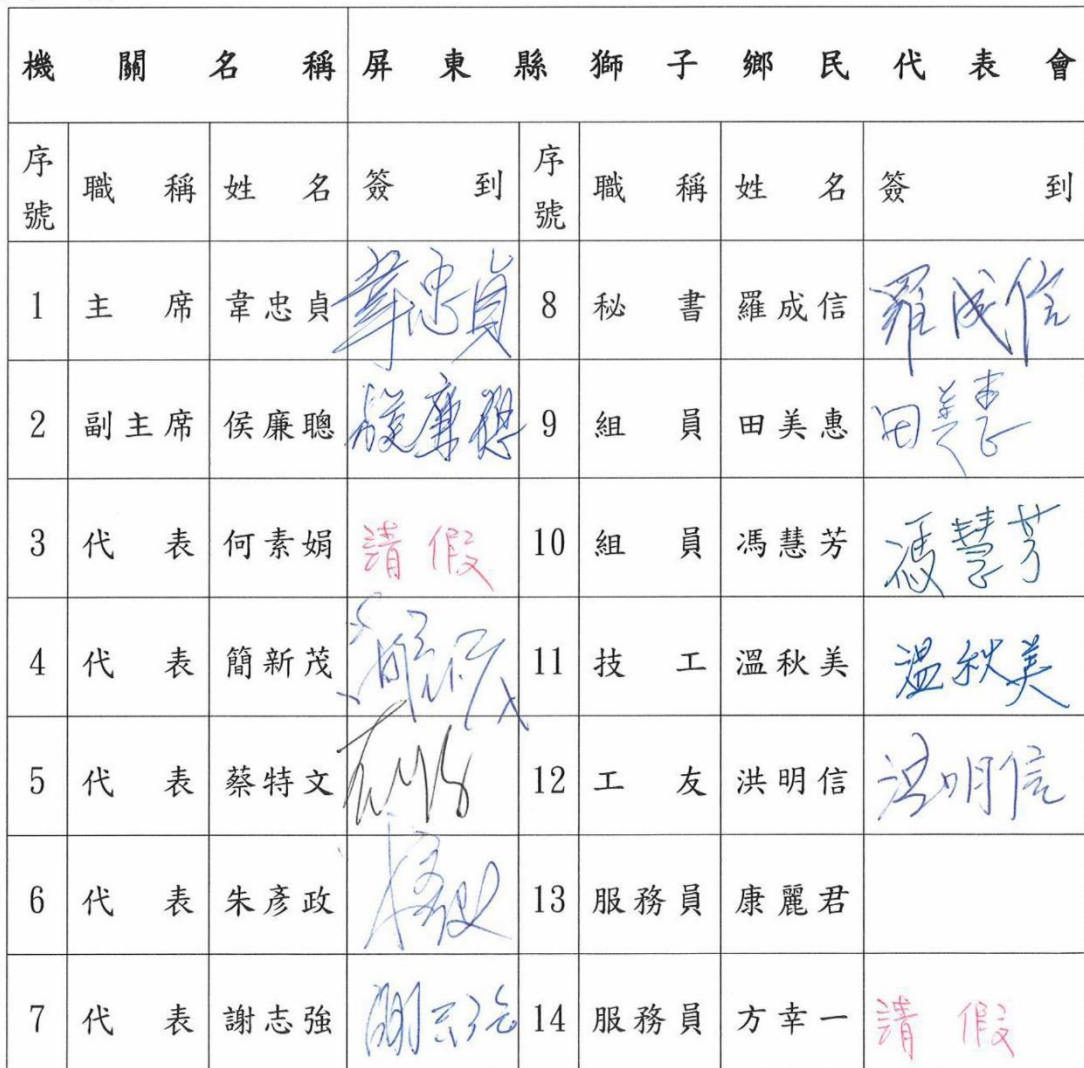 機關名稱 屏東縣獅子鄉民代表會
序號 職稱 姓名 簽到 序號 職稱 姓名 簽到
1 主席 韋忠貞 韋忠貞 8 秘書 羅成信 羅成信
2 副主席 侯廉聰 侯廉聰 9 組員 田美惠 田美惠
3 代表 何素娟 請假 10 組員 馮慧芳 馮慧芳
4 代表 簡新茂 11 技工 溫秋美 溫秋美
5 代表 蔡特文 12 工友 洪明信 洪明信
6 代表 朱彥政 13 服務員 康麗君
7 代表 謝志強 謝志強 14 服務員 方幸一 請假